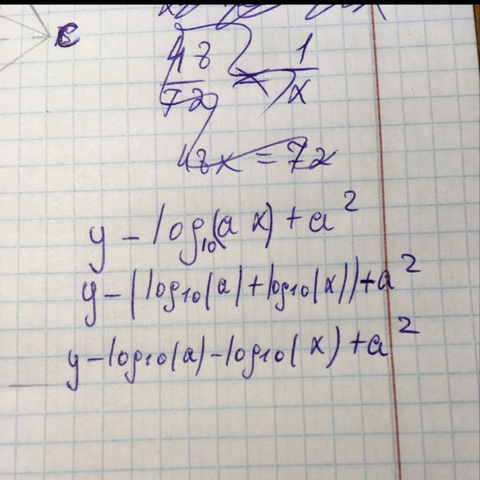 c
48/72 = 1/x
48x = 72
y - log₁₀(a x) + a²
y - (log₁₀(a) + log₁₀(x)) + a²
y - log₁₀(a) - log₁₀(x) + a²